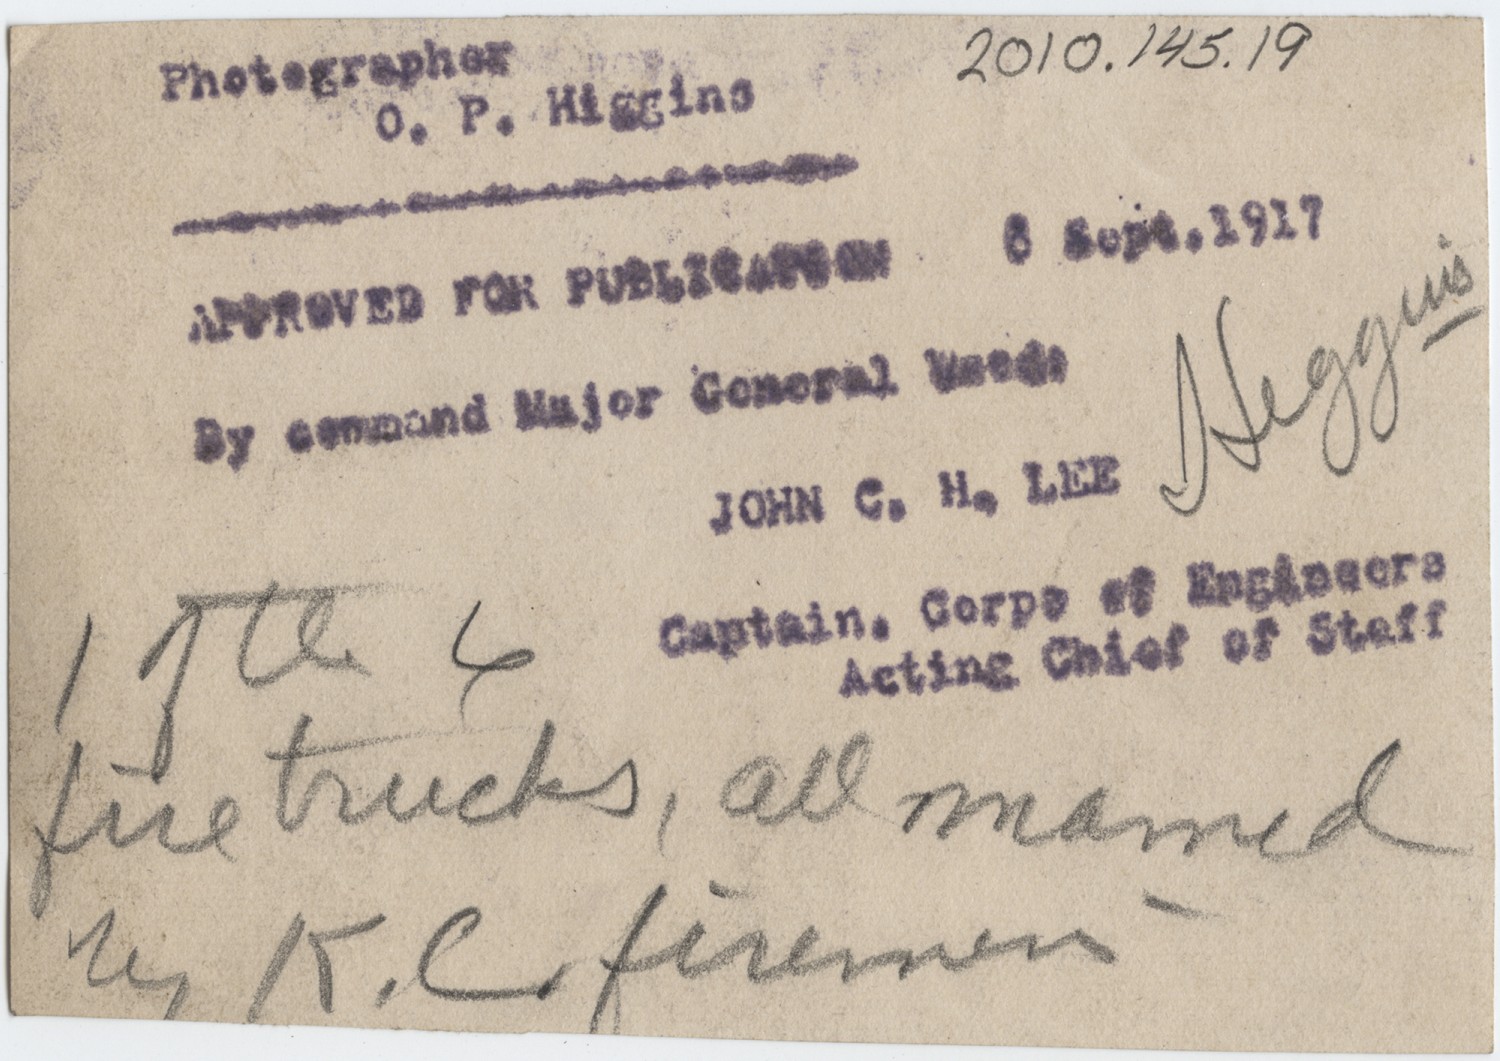 2010.145.19
Photographer
O. P. Higgins
APPROVED FOR PUBLICATION 8 Sept. 1917
By command Major General Wood:
Higgins
JOHN C. H. LEE
Captain. Corps of Engineers
Acting Chief of Staff
1 of the 6
fire trucks, all manned
by K.C. firemen